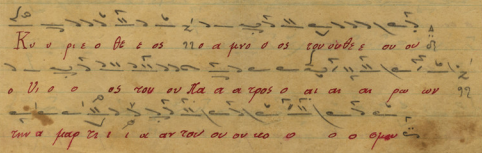 Κυ υ ρι ε ο θε ε ος ο α μνο ο ος του ουθε ε ου ου
ο Υι ο ο ος του ου Πα α α τρος ο αι αι αι ρω ων
την α μαρ τι ι ι α αν του ου ου κο ο ο ο σμου